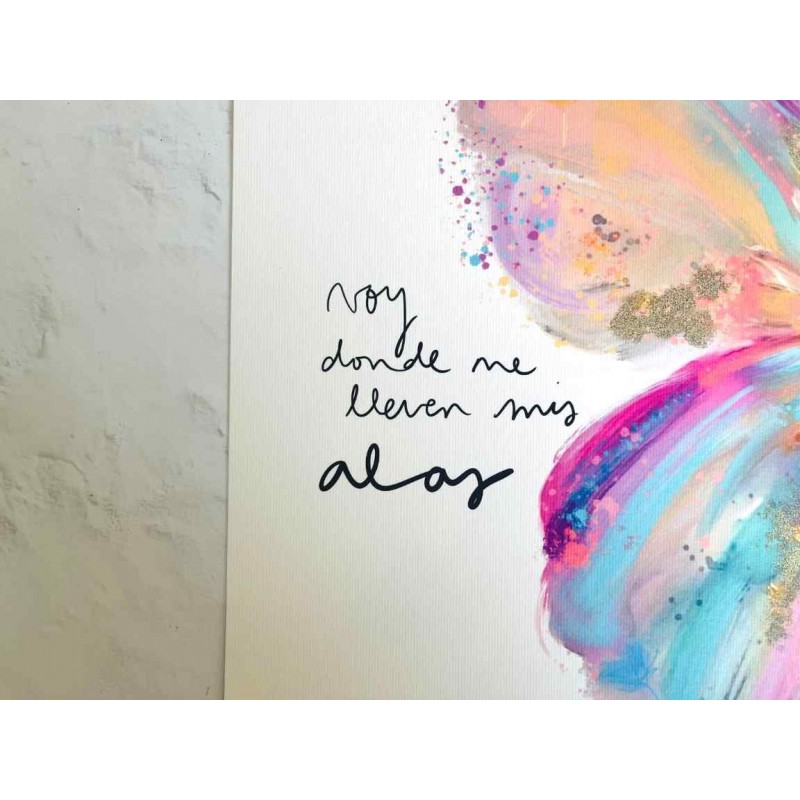 voy
donde me
lleven mis
alas